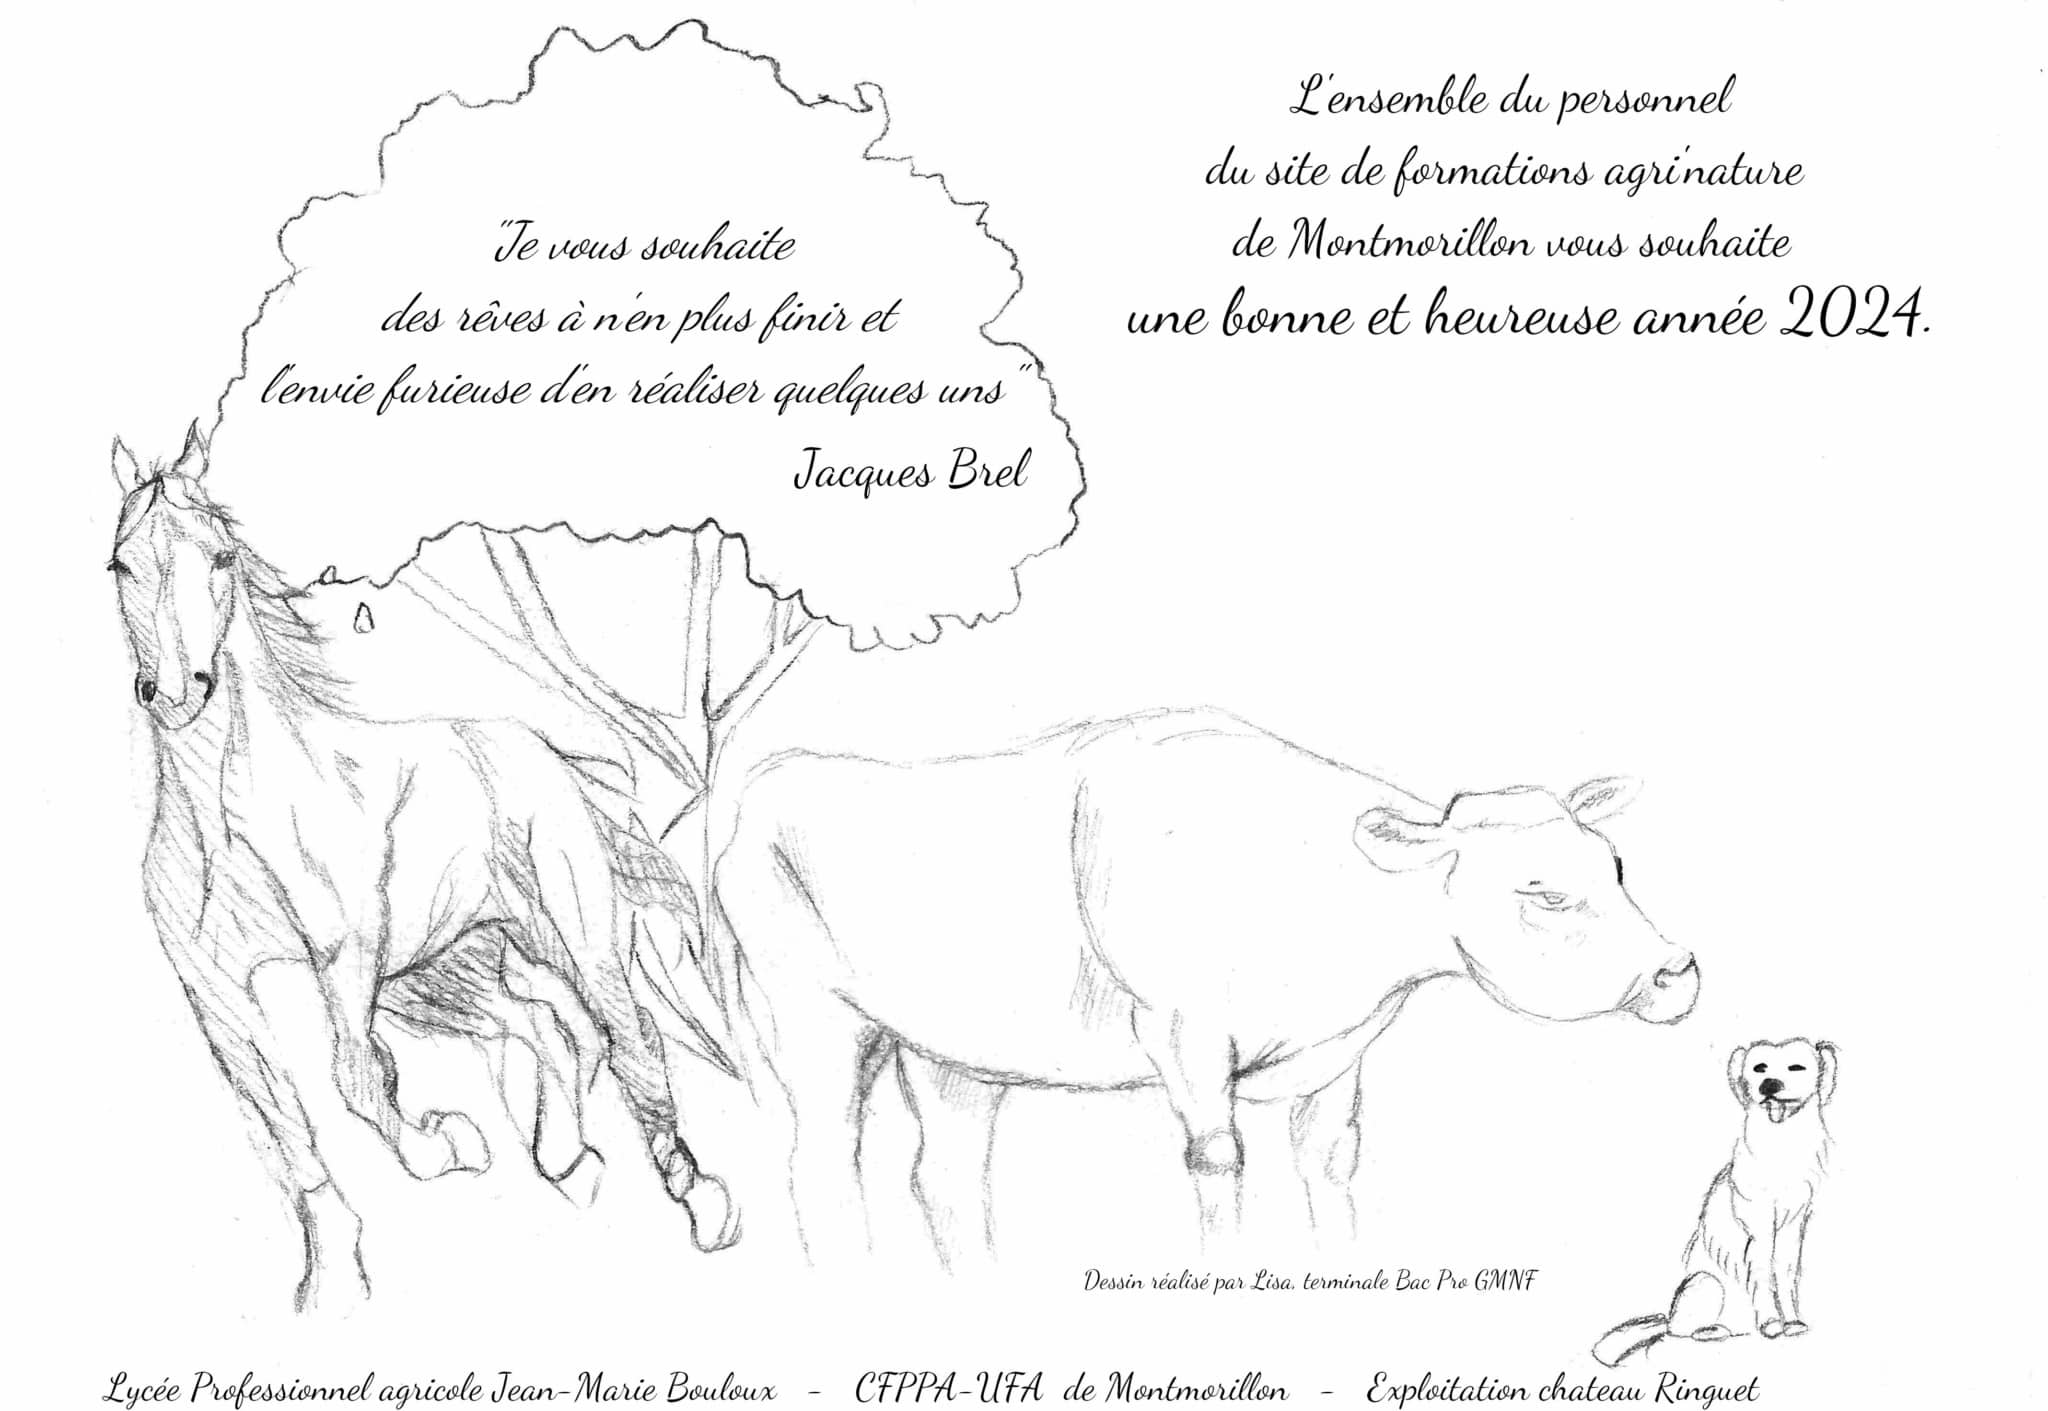 "Je vous souhaite
des rêves à n'en plus finir et
l'envie furieuse d'en réaliser quelques uns"
Jacques Brel
L'ensemble du personnel
du site de formations agri'nature
de Montmorillon vous souhaite
une bonne et heureuse année 2024.
Dessin réalisé par Lisa, terminale Bac Pro GMNF
Lycée Professionnel agricole Jean-Marie Bouloux - CFPPA-UFA de Montmorillon - Exploitation chateau Ringuet